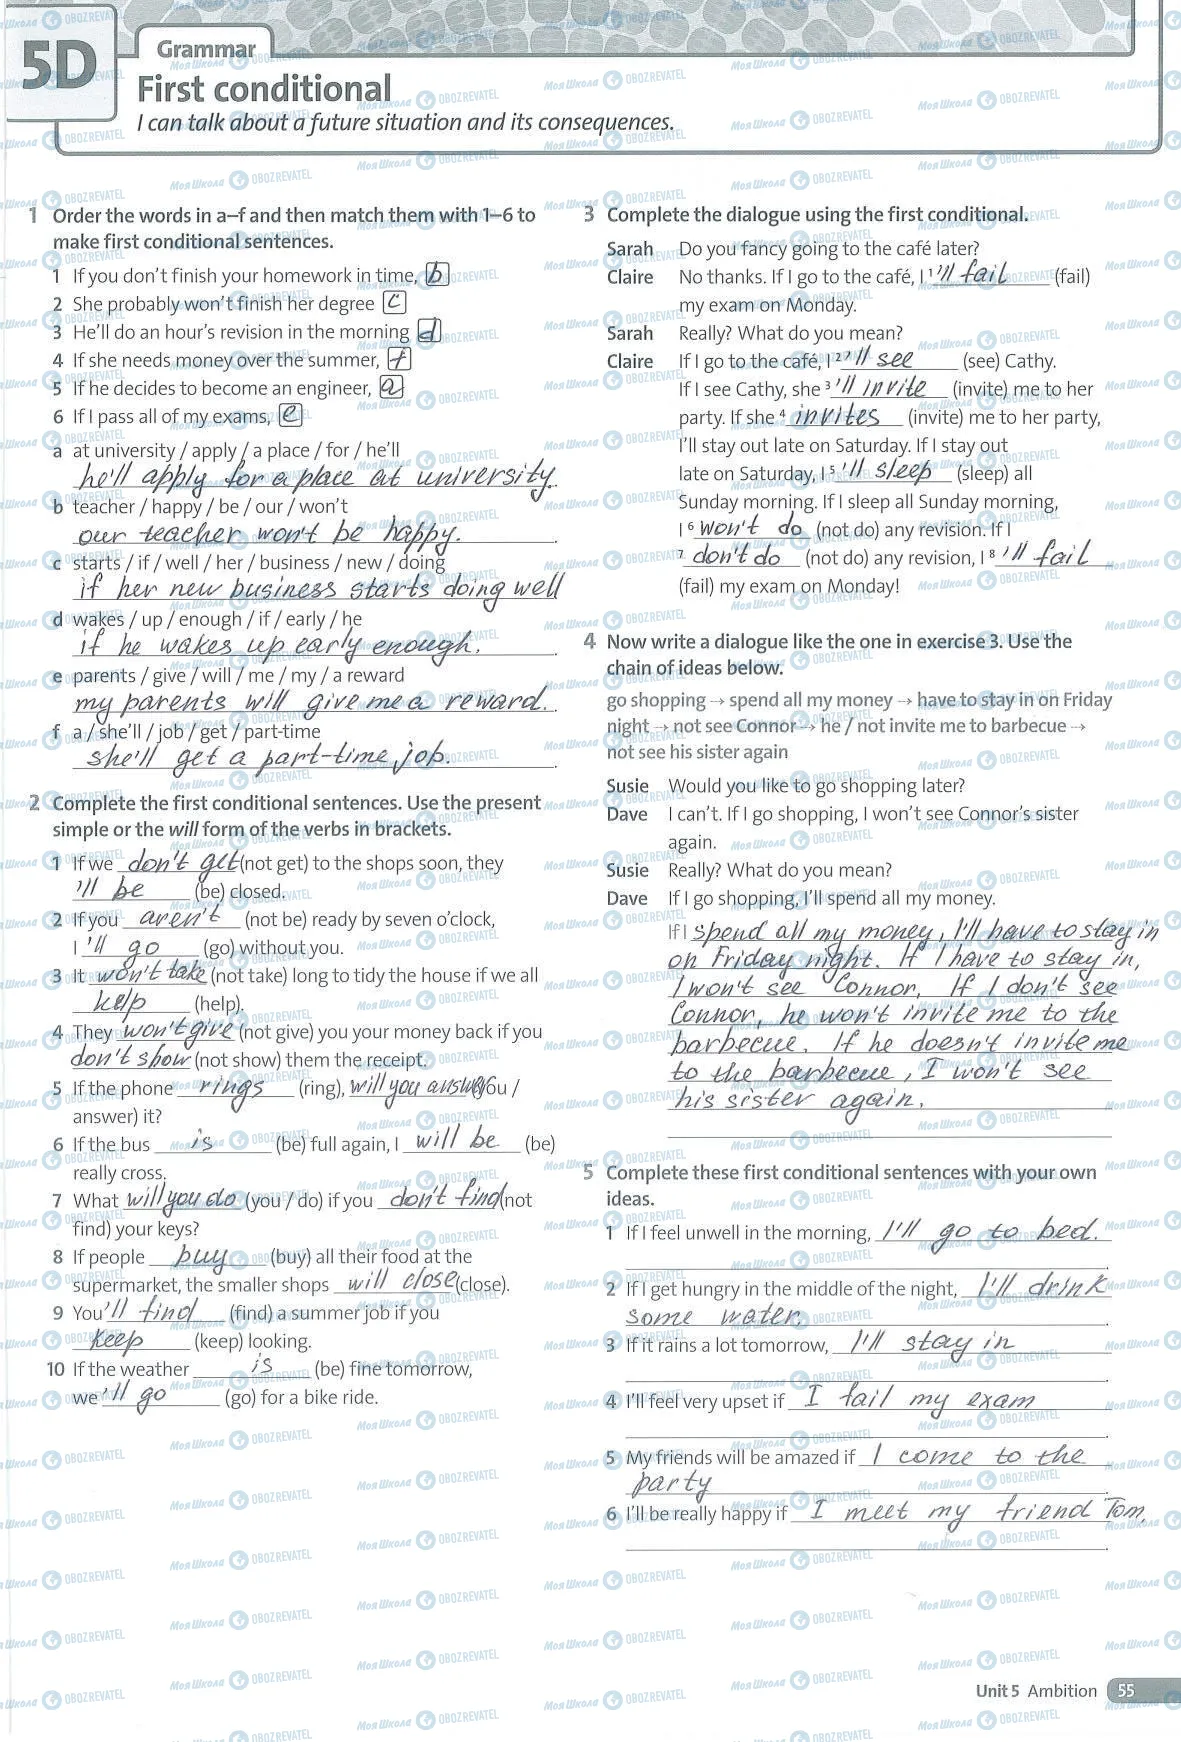 5D
Grammar
First conditional
I can talk about a future situation and its consequences.
1 Order the words in a–f and then match them with 1–6 to
make first conditional sentences.
1 If you don't finish your homework in time, b
2 She probably won't finish her degree c
3 He'll do an hour's revision in the morning d
4 If she needs money over the summer, f
5 If he decides to become an engineer, a
6 If I pass all of my exams, e
a at university / apply / a place / for / he'll
he'll apply for a place at university.
b teacher / happy / be / our / won't
our teacher won't be happy.
c starts / if / well / her / business / new / doing
if her new business starts doing well
d wakes / up / enough / if / early / he
if he wakes up early enough.
e parents / give / will / me / my / a reward
my parents will give me a reward.
f a / she'll / job / get / part-time
she'll get a part-time job.
2 Complete the first conditional sentences. Use the present
simple or the will form of the verbs in brackets.
1 If we don't get (not get) to the shops soon, they
'll be (be) closed.
2 If you aren't (not be) ready by seven o'clock,
I 'll go (go) without you.
3 It won't take (not take) long to tidy the house if we all
help (help).
4 They won't give (not give) you your money back if you
don't show (not show) them the receipt.
5 If the phone rings (ring), will you answer (you /
answer) it?
6 If the bus is (be) full again, I will be (be)
really cross.
7 What will you do (you / do) if you don't find (not
find) your keys?
8 If people buy (buy) all their food at the
supermarket, the smaller shops will close (close).
9 You 'll find (find) a summer job if you
keep (keep) looking.
10 If the weather is (be) fine tomorrow,
we 'll go (go) for a bike ride.
3 Complete the dialogue using the first conditional.
Sarah Do you fancy going to the café later?
Claire No thanks. If I go to the café, I 1 'll fail (fail)
my exam on Monday.
Sarah Really? What do you mean?
Claire If I go to the café, I 2 'll see (see) Cathy.
If I see Cathy, she 3 'll invite (invite) me to her
party. If she 4 invites (invite) me to her party,
I'll stay out late on Saturday. If I stay out
late on Saturday, I 5 'll sleep (sleep) all
Sunday morning. If I sleep all Sunday morning,
I 6 won't do (not do) any revision. If I
7 don't do (not do) any revision, I 8 'll fail
(fail) my exam on Monday!
4 Now write a dialogue like the one in exercise 3. Use the
chain of ideas below.
go shopping → spend all my money → have to stay in on Friday
night → not see Connor → he / not invite me to barbecue →
not see his sister again
Susie Would you like to go shopping later?
Dave I can't. If I go shopping, I won't see Connor's sister
again.
Susie Really? What do you mean?
Dave If I go shopping, I'll spend all my money.
If I spend all my money, I'll have to stay in
on Friday night. If I have to stay in,
I won't see Connor. If I don't see
Connor, he won't invite me to the
barbecue. If he doesn't invite me
to the barbecue, I won't see
his sister again.
5 Complete these first conditional sentences with your own
ideas.
1 If I feel unwell in the morning, I'll go to bed.
2 If I get hungry in the middle of the night, I'll drink
some water.
3 If it rains a lot tomorrow, I'll stay in
4 I'll feel very upset if I fail my exam
5 My friends will be amazed if I come to the
party
6 I'll be really happy if I meet my friend Tom.
Unit 5 Ambition 55
МояШкола OBOZREVATEL